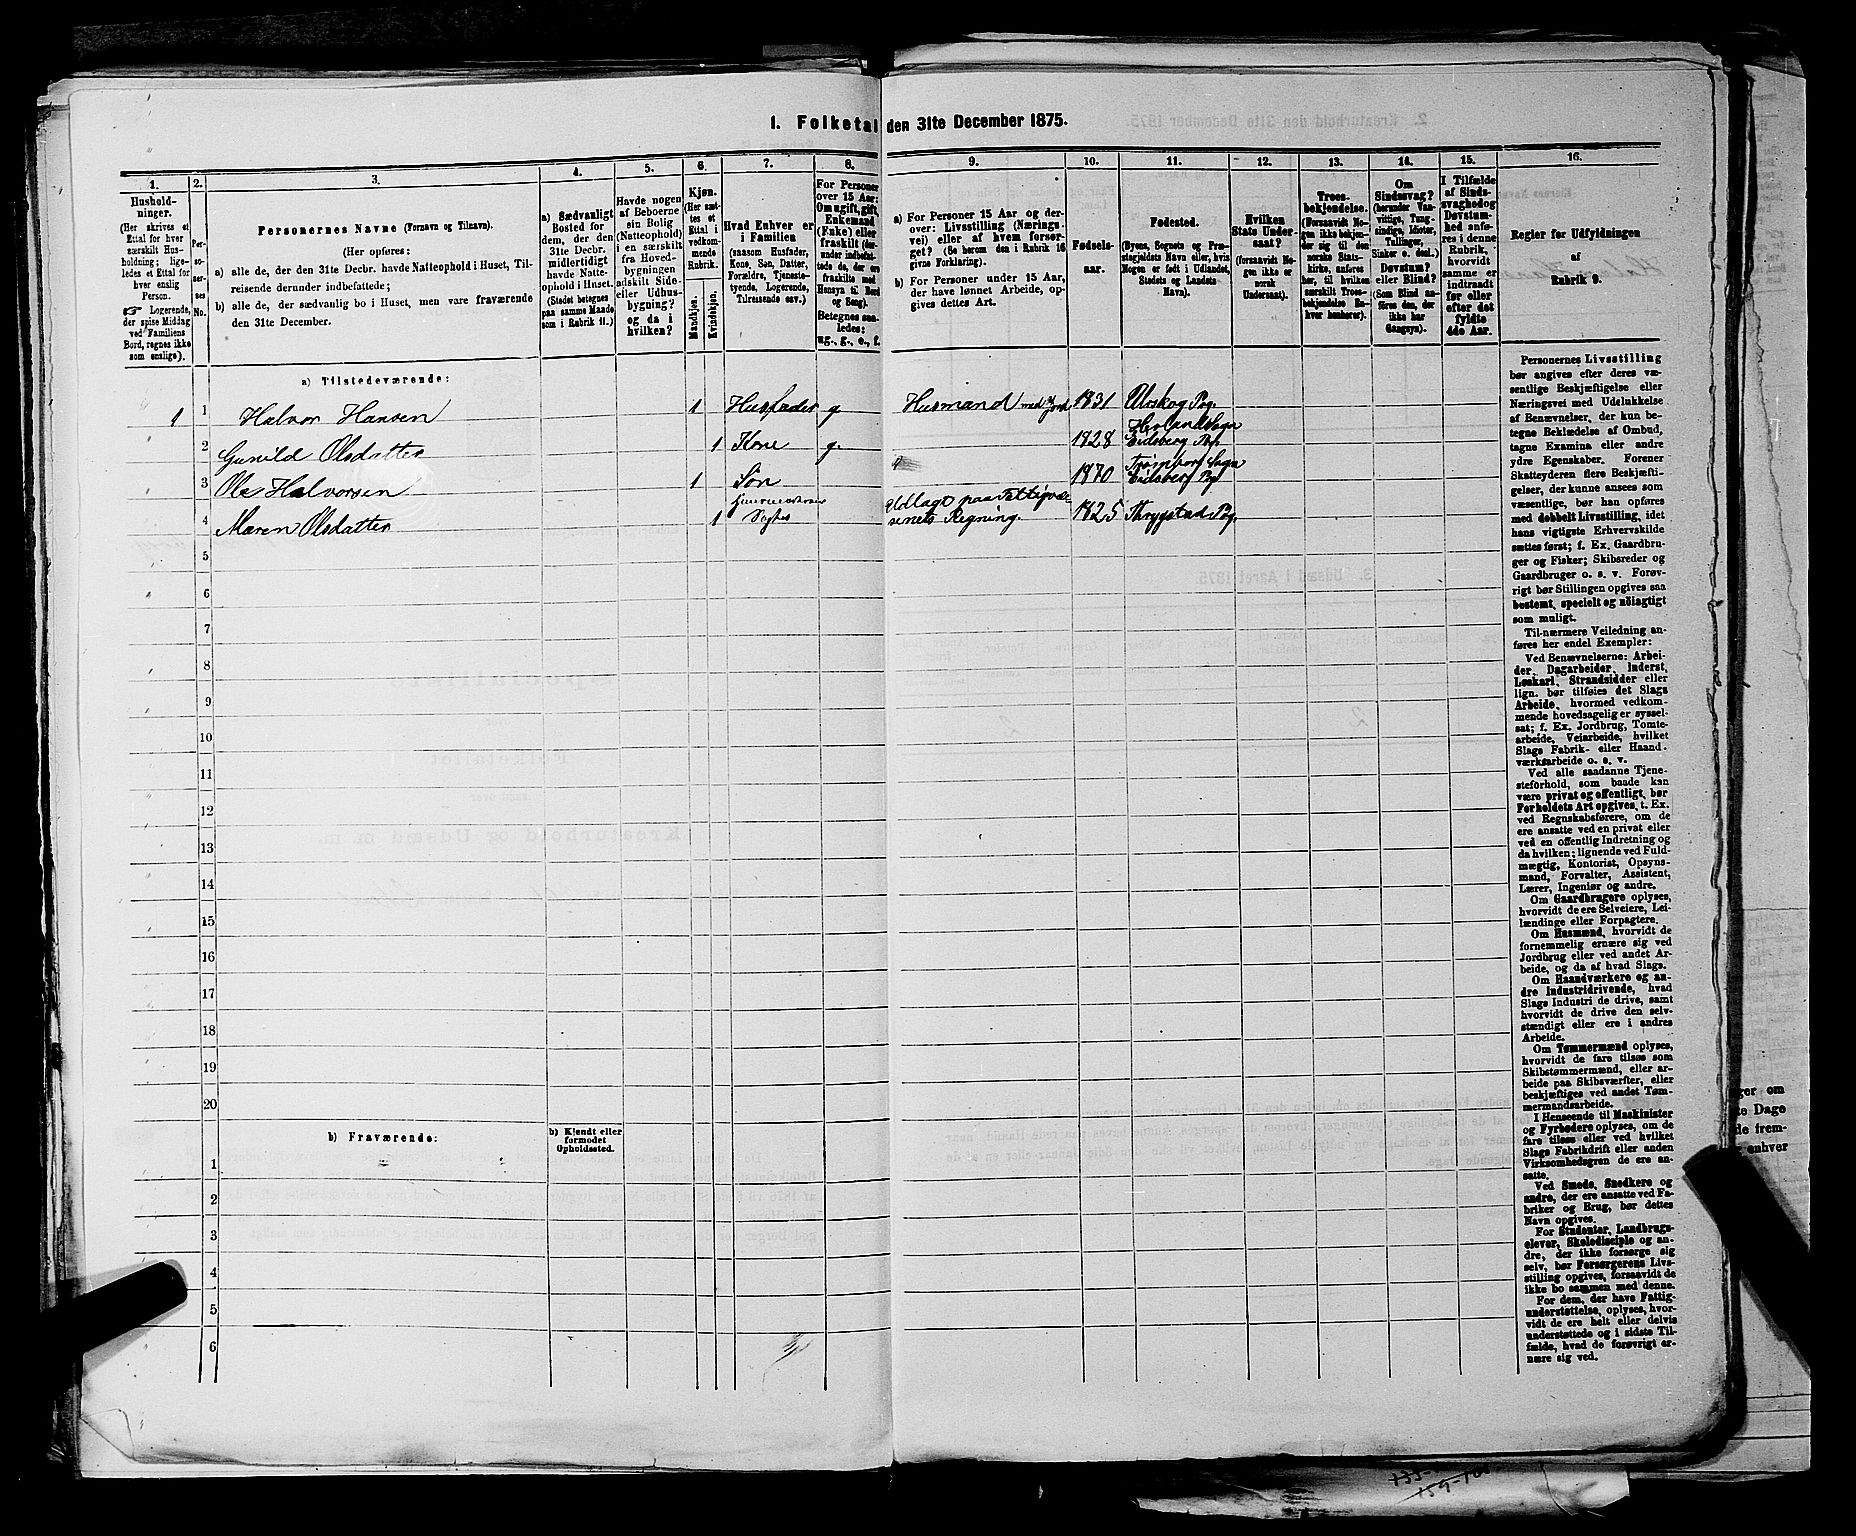 1. Folketal den 31te December 1875.
1.
Hushold-
ninger.
(Her skrives et
Ettal for hver
særskilt Hus-
holdning; lige-
ledes et Ettal for
hver enslig
Person.
Logerende,
der spise Middag
ved Familiens
Bord, regnes ikke
som enslige).
2.
Per-
soner-
nes
No.
3.
Personernes Navne (Fornavn og Tilnavn).
(Her opføres:
a) alle de, der den 31te Decbr. havde Natteophold i Huset, Til-
reisende derunder indbefattede;
b) alle de, der sædvanlig bo i Huset, men vare fraværende
den 31te December.
4.
a) Sædvanligt
Bosted for
dem, der den
31te Decbr.
midlertidigt
havde Natte-
ophold i Huset.
(Stedet betegnes
paa samme Maade
som i Rubrik 11.)
5.
Havde nogen
af Beboerne
sin Bolig
(Natteophold)
i en særskilt
fra Hoved-
bygningen
adskilt Side-
eller Udhus-
bygning?
og da i
hvilken?
6.
Kjøn.
(Her sæt-
tes et
Ettal i
vedkom-
mende
Rubrik.
Mandkjøn.
Kvindekjøn.
7.
Hvad Enhver er
i Familien
(saasom Husfader,
Kone, Søn, Datter,
Forældre, Tjeneste-
tyende, Logerende,
Tilreisende osv.)
8.
For Personer
over 15 Aar:
Om ugift, gift,
Enkemand
(Enke) eller
fraskilt (der-
under indbefat-
tede de, der ere
fraskilte med
Hensyn til Bord
og Seng).
Betegnes saa-
ledes:
ug., g., e., f.
9.
a) For Personer 15 Aar og der-
over: Livsstilling (Nærings-
vei) eller af hvem forsør-
get? (Se herom den i Rubrik 16
givne Forklaring).
b) For Personer under 15 Aar,
der have lønnet Arbeide, op-
gives dettes Art.
10.
Fødsels-
aar.
11.
Fødested.
(Byens, Sognets og Præ-
stegjeldets Navn eller, hvis
Nogen er født i Udlandet,
Stedets og Landets
Navn).
12.
Hvilken
Stats Under-
saat?
(forsaavidt No-
gen ikke er
norsk
Undersaat).
13.
Troes-
bekjendelse.
(Forsaavidt No-
gen ikke beken-
der sig til den
norske Stats-
kirke, anføres
her, til hvilken
Troesbekjendelse En-
hver henhører).
14.
Om
Sindssvag?
(herunder Van-
vittige, Tung-
sindige, Idioter,
Tullinger,
Sinker o. desl.)
Døvstum?
eller Blind?
(Som Blind an-
føres den, der
ikke har
Gangsyn).
15.
I Tilfælde
af Sinds-
svaghed og
Døvstum-
hed anfø-
res i denne
Rubrik,
hvorvidt
samme er
indtraadt
før eller
efter det
fyldte
4de Aar.
16.
Regler for Udfyldningen
af
Rubrik 9.
a) Tilstedeværende:
1 1 Halvor Hansen 1 Husfader g Husmand med Jord 1831 Urskog Pg.
Hølands Sogn
2 Gunild Olsdatter 1 Kone g 1828 Eidsberg Pg.
Trømborg Sogn
3 Ole Halvorsen 1 Søn 1870 Eidsberg Pg.
4 Maren Olsdatter 1 Udlagt paa Fattigvæ-
senets Regning. 1825 Thrygstad Pg.
5
6
7
8
9
10
11
12
13
14
15
16
17
18
19
20
b) Fraværende:
b) Kjendt eller
formodet
Opholdssted.
1
2
3
4
5
6
Personernes Livsstilling
bør angives efter deres væ-
sentlige Beskjæftigelse eller
Næringsvei med Udelukkelse
af Benævnelser, der kun be-
tegne Beklædelse af Ombud,
tagne Examina eller andre
ydre Egenskaber. Forener
Skatteyderen flere Beskjæfti-
gelser, der kunne ansees som
væsentlige, bør han opføres
med dobbelt Livsstilling, idet
hans vigtigste Erhvervskilde
sættes først; f. Ex. Gaardbru-
ger og Fisker; Skibsreder og
Gaardbruger o. s. v. Forøv-
rigt bør Stillingen opgives saa
bestemt, specielt og nöiagtigt
som muligt.
Til nærmere Veiledning an-
føres her endel Exempler:
Ved Benævnelserne: Arbei-
der, Dagarbeider, Inderst,
Løskarl, Strandsidder eller
lign. bør tilføies det Slags
Arbeide, hvormed vedkom-
mende hovedsagelig er syssel-
sat; f. Ex. Jordbrug, Tomte-
arbeide, Veiarbeide, hvilket
Slags Fabrik- eller Haand-
værksarbeide o. s. v.
Ved alle saadanne Tjene-
steforhold, som baade kan
være privat og offentligt, bør
Forholdets Art opgives, t. Ex.
ved Regnskabsførere, om de
ere ansatte ved en privat eller
ved en offentlig Indretning og
da hvilken; lignende ved Fuld-
mægtig, Kontorist, Opsyns-
mand, Forvalter, Assistent,
Lærer, Ingeniør og andre.
Om Gaardbrugere oplyses,
hvorvidt de ere Selveiere, Lei-
lændinge eller Forpagtere.
Om Husmænd, hvorvidt de
fornemmelig ernære sig ved
Jordbrug eller ved andet Ar-
beide, og da af hvad Slags.
Om Haandværkere og an-
dre Industridrivende, hvad
Slags Industri de drive, samt
hvorvidt de drive den selv-
stændigt eller ere i andres
Arbeide.
Om Tømmermænd oplyses,
hvorvidt de fare tilsøs som
Skibstømmermænd, eller ar-
beide paa Skibsværfter, eller
beskjæftiges ved andet Tøm-
mermandsarbeide.
I Henseende til Maskinister
og Fyrbødere oplyses, om de
fare tilsøs eller ved hvilket
Slags Fabrikdrift eller anden
Virksomhedsgren de ere an-
satte.
Ved Smede, Snedkere og
andre, der ere ansatte ved Fa-
briker og Brug, bør dettes
Navn opgives.
For Studenter, Landbrugs-
elever, Skoledisciple og an-
dre, der ikke forsørge sig
selv, bør Forsørgerens Livs-
stilling opgives, forsaavidt de
ikke bo sammen med denne.
For dem, der have Fattig-
understøttelse, oplyses, hvor-
vidt de ere helt eller delvis
understøttede og i sidste Til-
fælde, hvad de forøvrigt er-
nære sig ved.